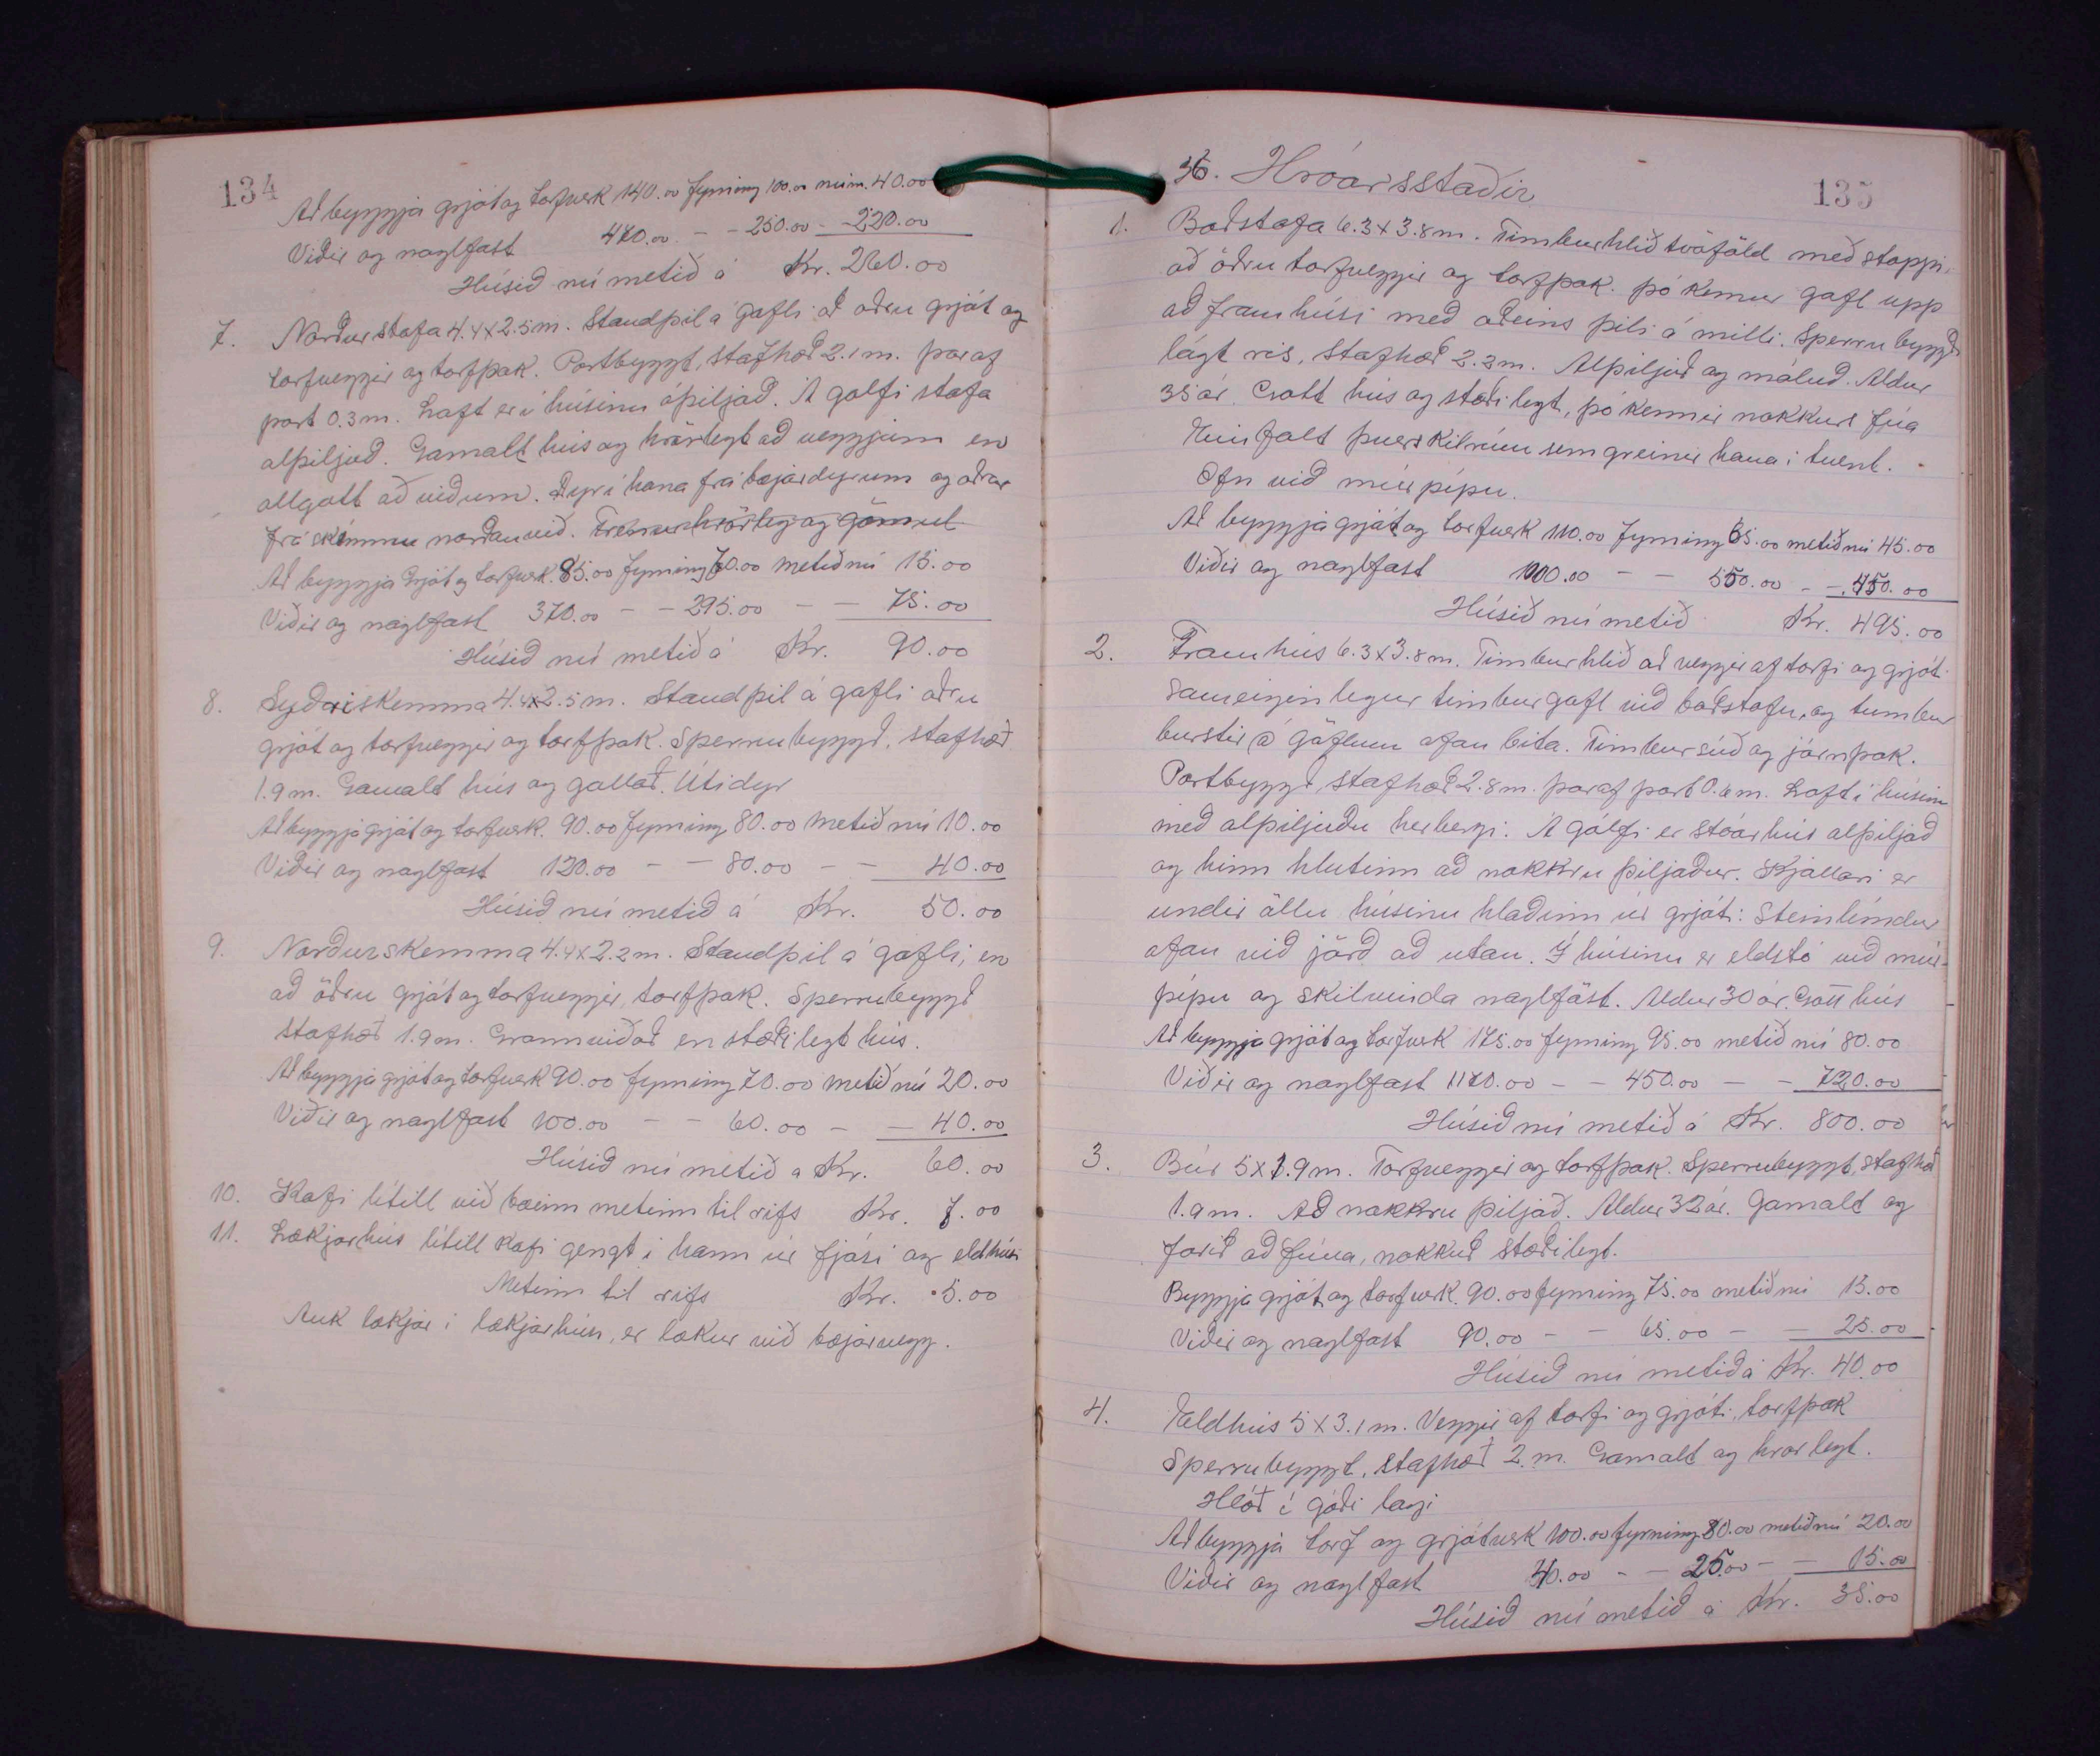 134
Að byggja grjót og torfverk 140.00 fyrning 100.00 nú m. 40.00
Viðir og naglfast 470.00 - - 250.00 - 220.00
Húsið nú metið á Kr. 260.00
7. Norðurstofa 4.4x2.5m. Standþil á gafli að öðru grjót og
torfveggir og torfþak. Portbyggt, stafhæð 2.1m. þar af
port 0.3m. Loft er í húsinu óþiljað. Á golfi stofa
alþiljuð. Gamalt hús og hrörlegt að veggjum en
allgott að viðum. Dyr í hana frá bæjardyrum og aðrar
frá skemmu norðanvið. Fremur hrörleg og gömul
Að byggja Grjót og torfverk. 85.00 fyrning 70.00 metið nú 15.00
Viðir og naglfast 370.00 - - 295.00 - - 75.00
Húsið nú metið á Kr. 90.00
8. Syðriskemma 4.4x2.5m. Standþil á gafli öðru
grjót og torfveggir og torfþak. Sperrubyggð, stafhæð
1.9m. Gamalt hús og gallað. Útidyr
Að byggja grjót og torfverk. 90.00 fyrning 80.00 metið nú 10.00
Viðir og naglfast 120.00 - - 80.00 - - 40.00
Húsið nú metið á Kr. 50.00
9. Norðurskemma 4.4x2.2m. Standþil á gafli, en
að öðru grjót og torfveggir, torfþak. Sperrubyggð
stafhæð 1.9m. Grannviðað en stæðilegt hús.
Að byggja grjót og torfverk 90.00 fyrning 70.00 metið nú 20.00
Viðir og naglfast 100.00 - - 60.00 - - 40.00
Húsið nú metið a Kr. 60.00
10. Kofi lítill við bæinn metinn til rifs Kr. 7.00
11. Lækjarhús lítill kofi gengt í hann úr fjósi og eldhúsi
Metinn til rifs Kr. 5.00
Auk lækjar í lækjarhúsi, er lækur við bæjarvegg.
36. Hróarsstaðir
135
1. Baðstofa 6.3x3.8m. Timburhlið tvöföld með stoppi,
að öðru torfveggir og torfþak. þó kemur gafl upp
að framhúsi með aðeins þili á milli. Sperrubyggð
lágt ris, Stafhæð 2.2m. Alþiljuð og máluð. Aldur
35 ár. Gott hús og stæðilegt, þó kennir nokkurs fúa
Einfalt þverskilrúm sem greinir hana í tvent.
Ofn við múrpípu.
Að byggja grjót og torfverk 110.00 fyrning 65.00 metið nú 45.00
Viðir og naglfast 1000.00 - - 550.00 - - 450.00
Húsið nú metið Kr. 495.00
2. Framhús 6.3x3.8m. Timburhlið að veggir af torfi og grjót.
Sameiginlegur timburgafl við baðstofu, og timbur
burstir á göflum ofan bita. Timbursúð og járnþak.
Portbyggð, stafhæð 2.8m. þar af port 0.6m. Loft í húsinu
með alþiljuðu herbergi. Á gólfi er stóarhús alþiljað
og hinn hlutinn að nokkru þiljaður. Kjallari er
undir öllu húsinu hlaðinn úr grjóti: Steinlímdur
ofan við jörð að utan. Í húsinu er eldstó við múr-
pípu og skilvinda naglföst. Aldur 30 ár. Gott hús
Að byggja grjót og torfverk 175.00 fyrning 95.00 metið nú 80.00
Viðir og naglfast 1170.00 - - 450.00 - - 720.00
Húsið nú metið á Kr. 800.00
3. Búr 5x1.9m. Torfveggir og torfþak. Sperrubyggt, stafhæð
1.9m. Að nokkru þiljað. Aldur 32 ár. Gamalt og
farið að fúna, nokkuð stæðilegt.
Byggja grjót og torfverk. 90.00 fyrning 75.00 metið nú 15.00
Viðir og naglfast 90.00 - - 65.00 - - 25.00
Húsið nú metið á Kr. 40.00
4. Eldhús 5x3.1m. Veggir af torfi og grjóti, torfþak
Sperrubyggt, stafhæð 2.m. Gamalt og hrörlegt.
Hlóð í góði lagi
Að byggja torf og grjótverk 100.00 fyrning 80.00 metið nú 20.00
Viðir og naglfast 40.00 - - 25.00 - - 15.00
Húsið nú metið á Kr. 35.00